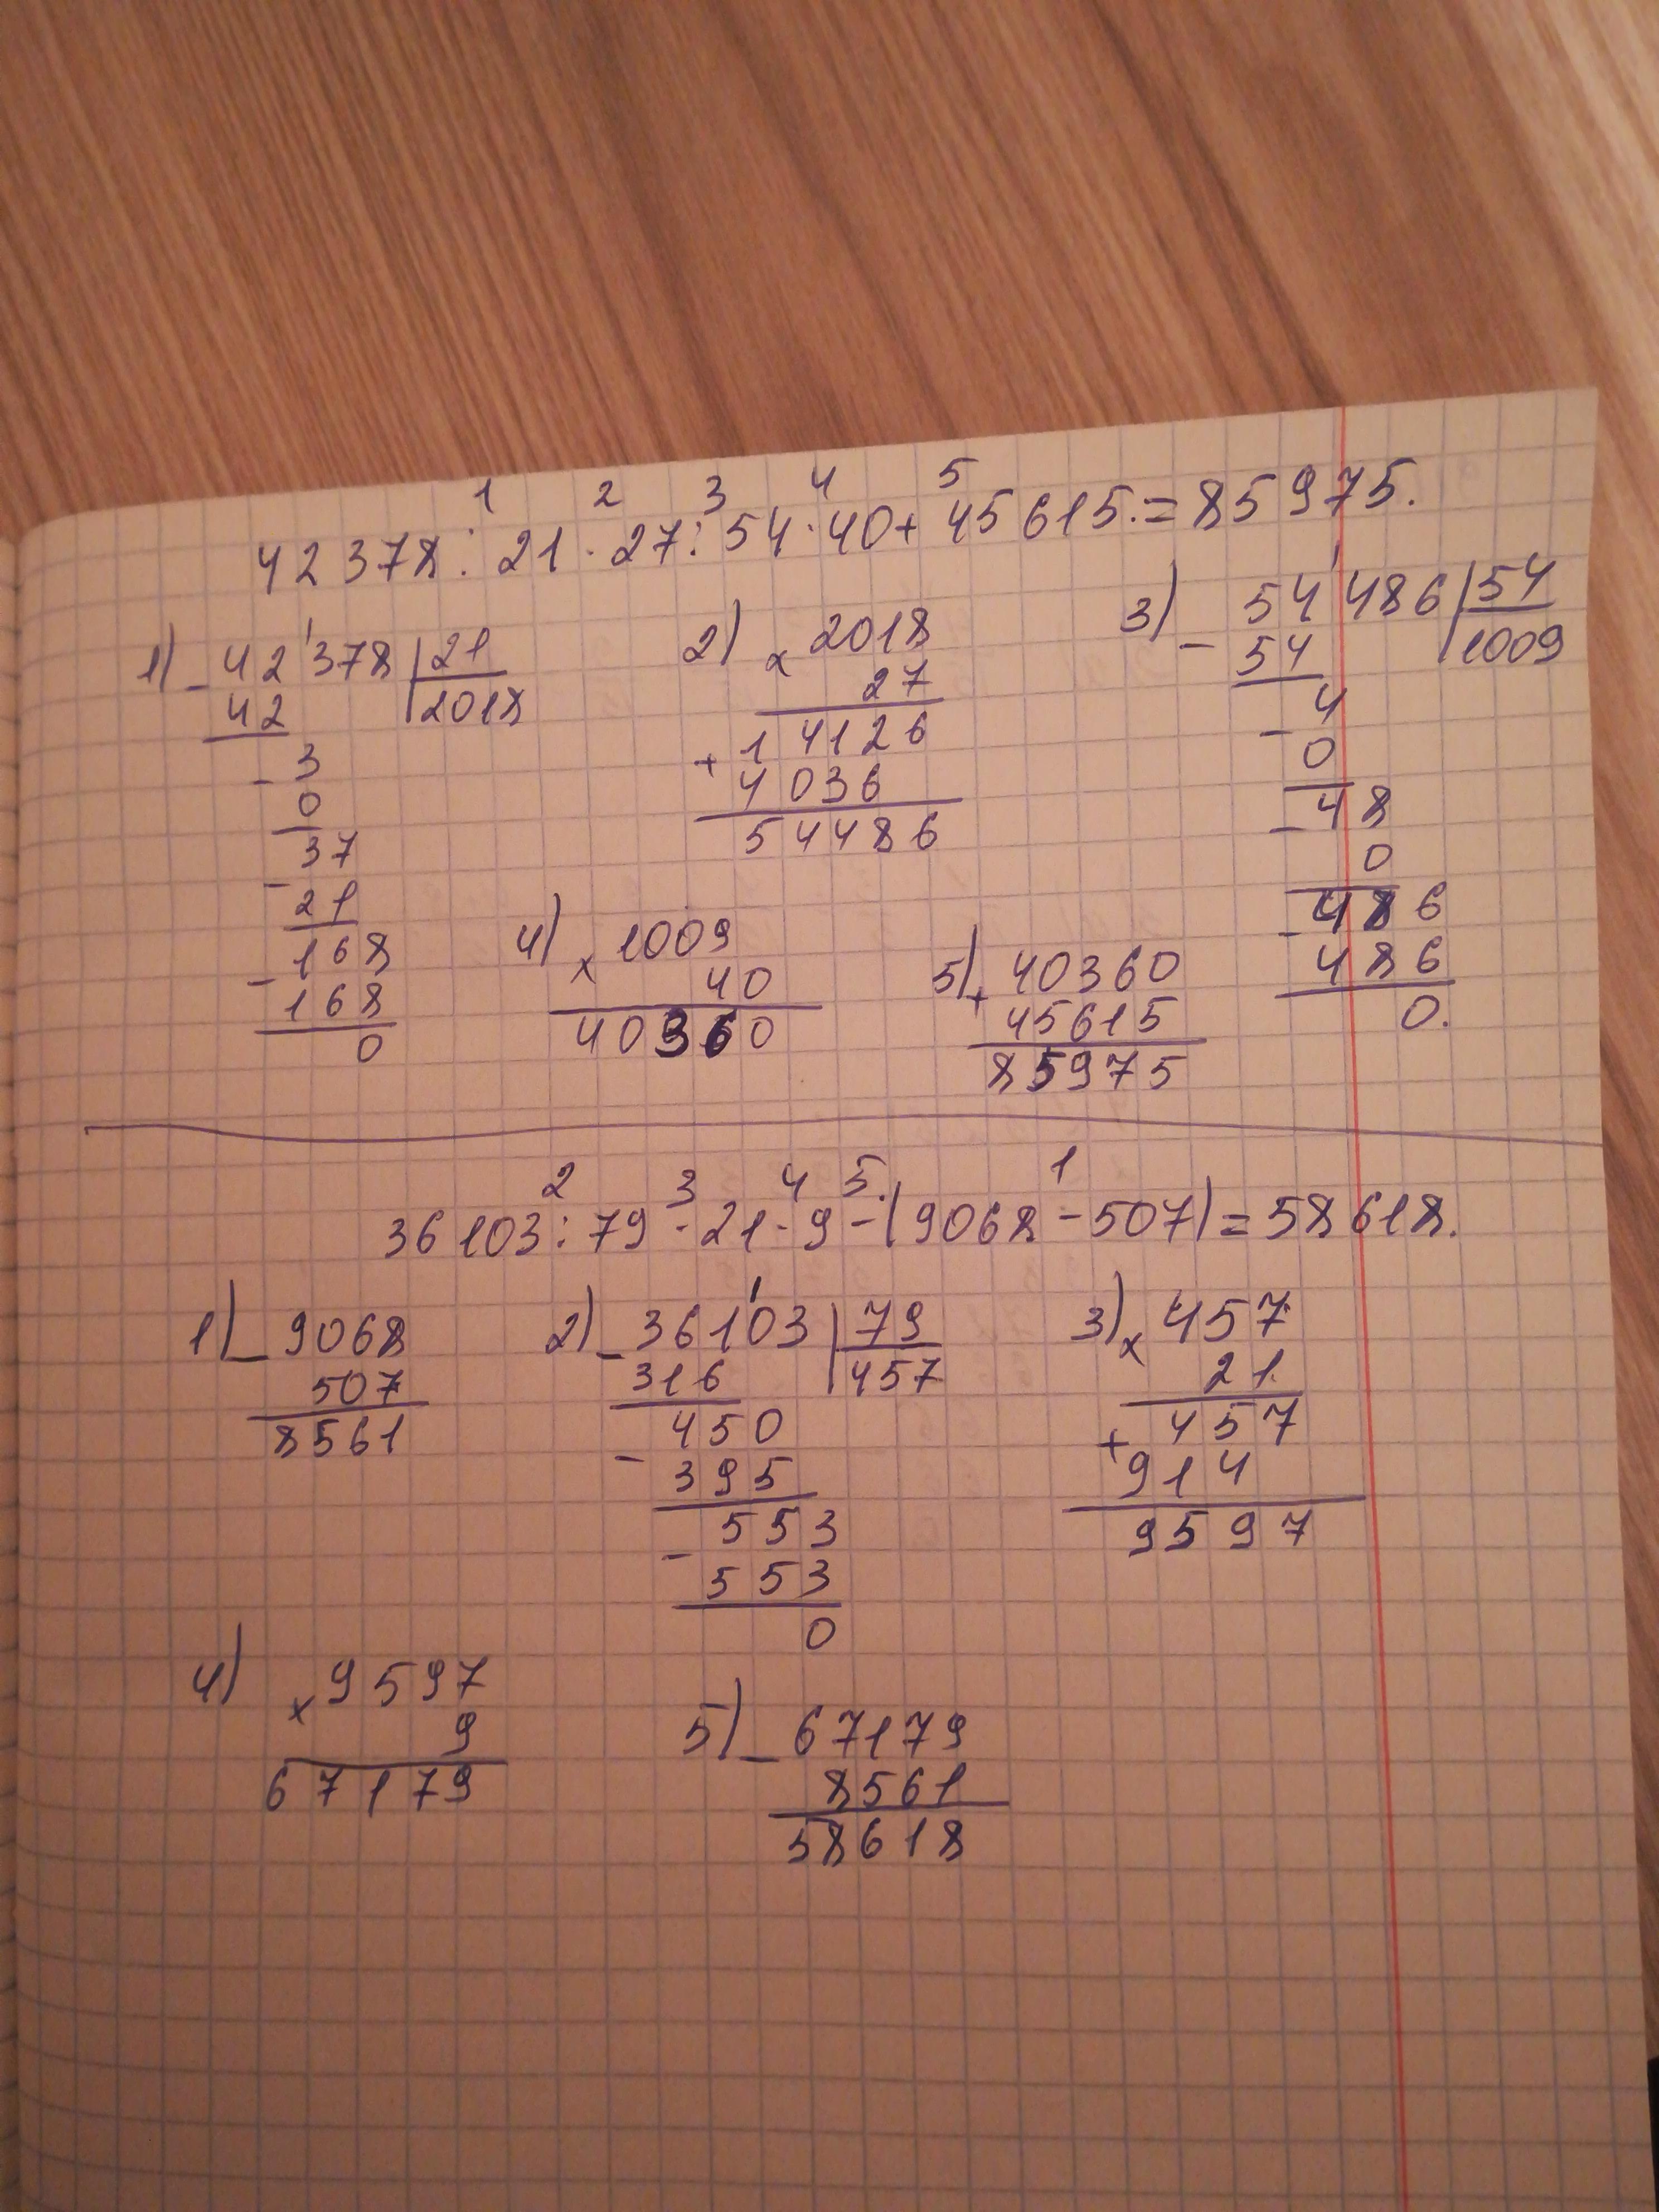 1 2 3 4 5
42378 : 21 · 27 : 54 · 40 + 45615. = 85975.
1) - 42'378 | 21
42 | 2018
- 3
0
37
- 21
168
- 168
0
2) x 2018
27
+ 14126
4036
54486
3) - 54'486 | 54
54 | 1009
4
- 0
48
- 0
- 486
486
0.
4) x 1009
40
40360
5) + 40360
45615
85975
2 3 4 5. 1
36103 : 79 · 21 · 9 - (9068 - 507) = 58618.
1) - 9068
507
8561
2) - 361'03 | 79
316 | 457
450
- 395
553
- 553
0
3) x 457
21.
+ 457
914
9597
4) x 9597
9
67179
5) - 67179
8561
58618